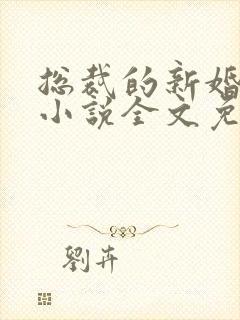 总裁的新婚
小说全文免
劉卉